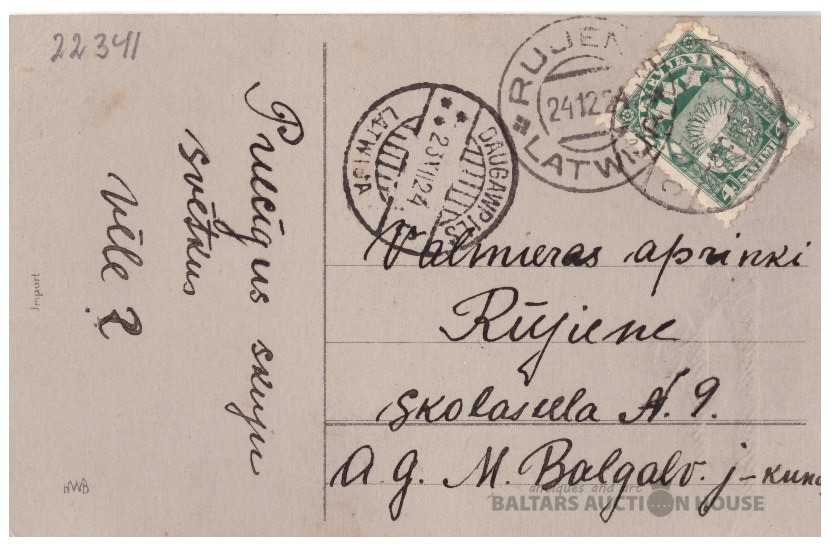 22341
Priecīgus
svētkus
vēle ?
Import
RUJEN
24 12 24
LATWIJA
DAUGAWPILS
23 XII 24
LATWIJA
LATVIJA
Valmieras apriņķi
Rūjiene
skolasiela N. 9.
A. g. M. Balgalv. j-kung
antiques and art
BALTARS AUCTION HOUSE